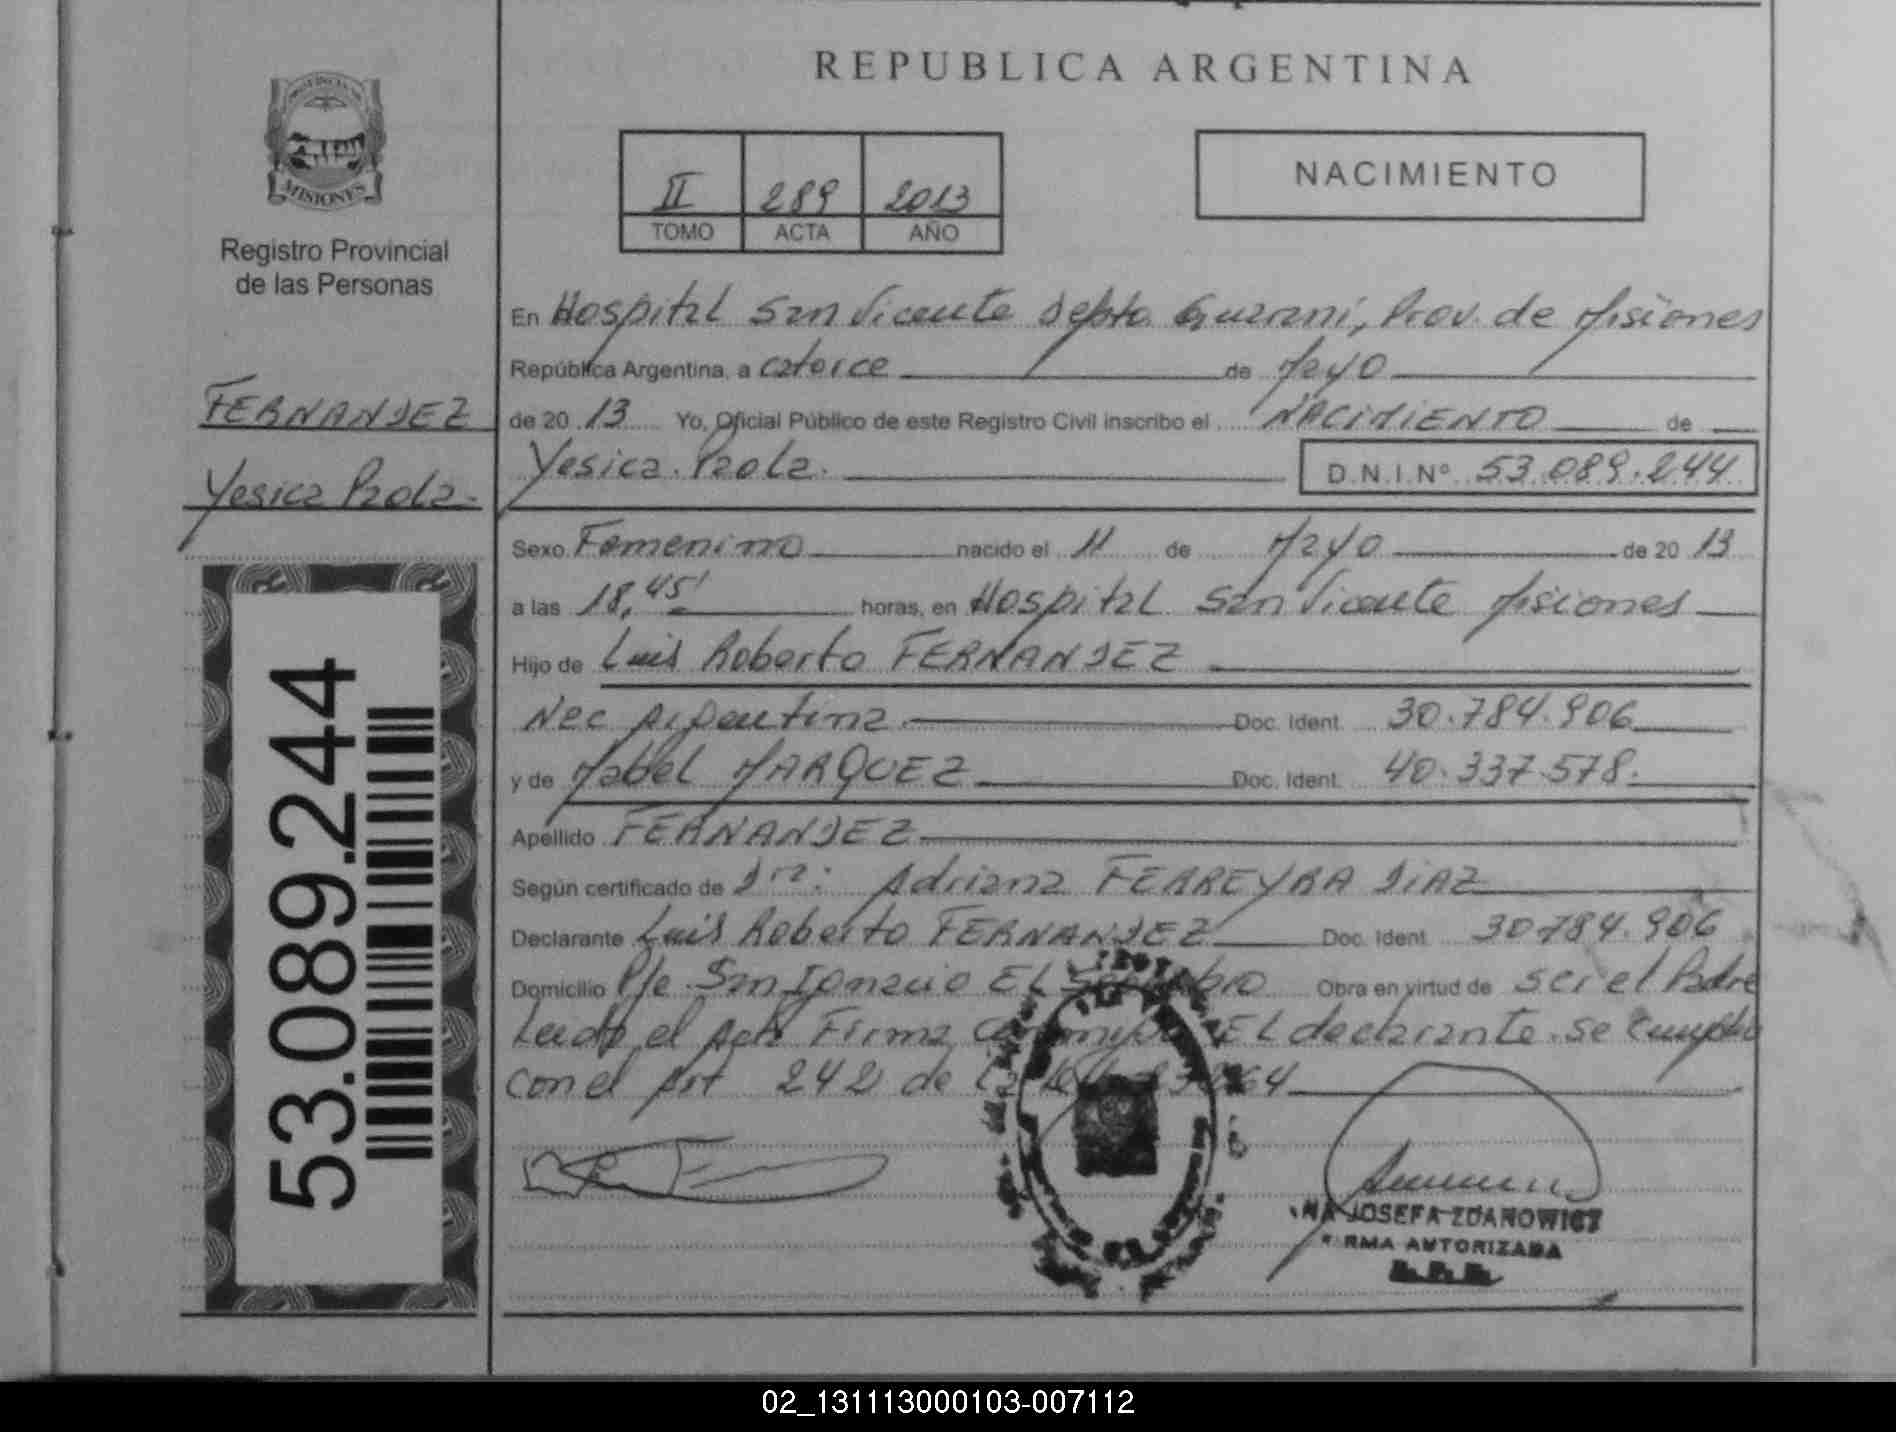 REPUBLICA ARGENTINA
PROVINCIA DE
MISIONES
Registro Provincial
de las Personas
II 289 2013
TOMO ACTA AÑO
NACIMIENTO
FERNANDEZ
Yesica Paola.
53.089.244
En Hospital San Vicente Depto Guarani, Prov. de Misiones
República Argentina, a catorce de Mayo
de 20 13 Yo, Oficial Público de este Registro Civil inscribo el NACIMIENTO de
Yesica Paola. D.N.I.Nº 53.089.244
Sexo Femenino nacido el 11 de Mayo de 20 13
a las 18,45' horas, en Hospital San Vicente Misiones
Hijo de Luis Roberto FERNANDEZ
Nac Argentina Doc. Ident. 30.784.906
y de Mabel MARQUEZ Doc. Ident. 40.337.578.
Apellido FERNANDEZ
Según certificado de Dra: Adriana FERREYRA DIAZ
Declarante Luis Roberto FERNANDEZ Doc. Ident. 30784.906
Domicilio Pje San Ignacio EL Obra en virtud de ser el Padre
Leida el Acta Firma EL declarante. se cumplio
con el Art 242 de
JOSEFA ZDANOWICZ
RMA AUTORIZADA
02_131113000103-007112